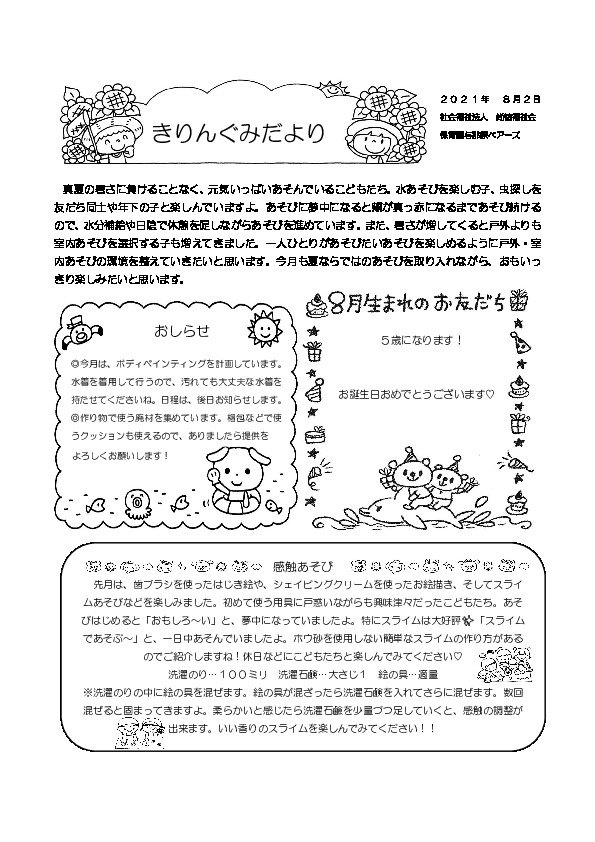 きりんぐみだより
２０２１年　８月２日
社会福祉法人
保育園
真夏の暑さに負けることなく、元気いっぱいあそんでいるこどもたち。水あそびを楽しむ子、虫探しを
友だち同士や年下の子と楽しんでいますよ。あそびに夢中になると頬が真っ赤になるまであそび続ける
ので、水分補給や日陰で休憩を促しながらあそびを進めています。また、暑さが増してくると戸外よりも
室内あそびを選択する子も増えてきました。一人ひとりがあそびたいあそびを楽しめるように戸外・室
内あそびの環境を整えていきたいと思います。今月も夏ならではのあそびを取り入れながら、おもいっ
きり楽しみたいと思います。
おしらせ
◎今月は、ボディペインティングを計画しています。
水着を着用して行うので、汚れても大丈夫な水着を
持たせてくださいね。日程は、後日お知らせします。
◎作り物で使う廃材を集めています。梱包などで使
うクッションも使えるので、ありましたら提供を
よろしくお願いします！
8月生まれのお友だち
５歳になります！
お誕生日おめでとうございます♡
感触あそび
先月は、歯ブラシを使ったはじき絵や、シェイビングクリームを使ったお絵描き、そしてスライ
ムあそびなどを楽しみました。初めて使う用具に戸惑いながらも興味津々だったこどもたち。あそ
びはじめると「おもしろ～い」と、夢中になっていましたよ。特にスライムは大好評✨「スライム
であそぶ～」と、一日中あそんでいましたよ。ホウ砂を使用しない簡単なスライムの作り方がある
のでご紹介しますね！休日などにこどもたちと楽しんでみてください♡
洗濯のり…１００ミリ　洗濯石鹸…大さじ１　絵の具…適量
※洗濯のりの中に絵の具を混ぜます。絵の具が混ざったら洗濯石鹸を入れてさらに混ぜます。数回
混ぜると固まってきますよ。柔らかいと感じたら洗濯石鹸を少量づつ足していくと、感触の調整が
出来ます。いい香りのスライムを楽しんでみてください！！